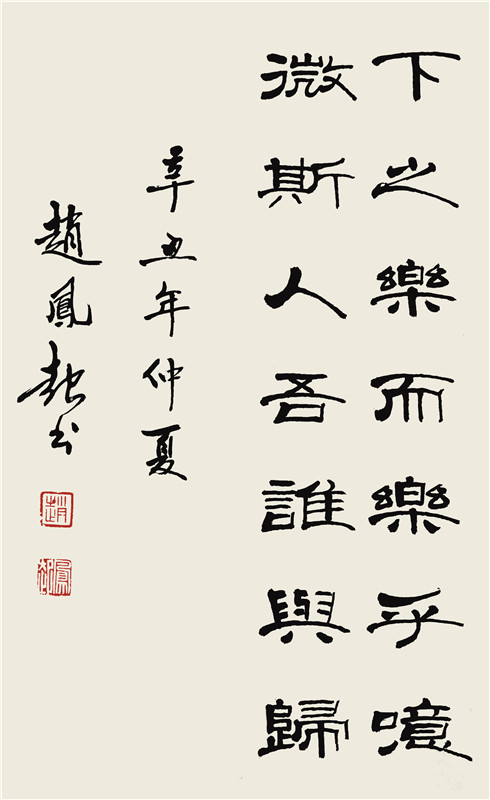 下之樂而樂乎噫
微斯人吾誰與歸
辛丑年仲夏
趙鳳书
趙
鳳